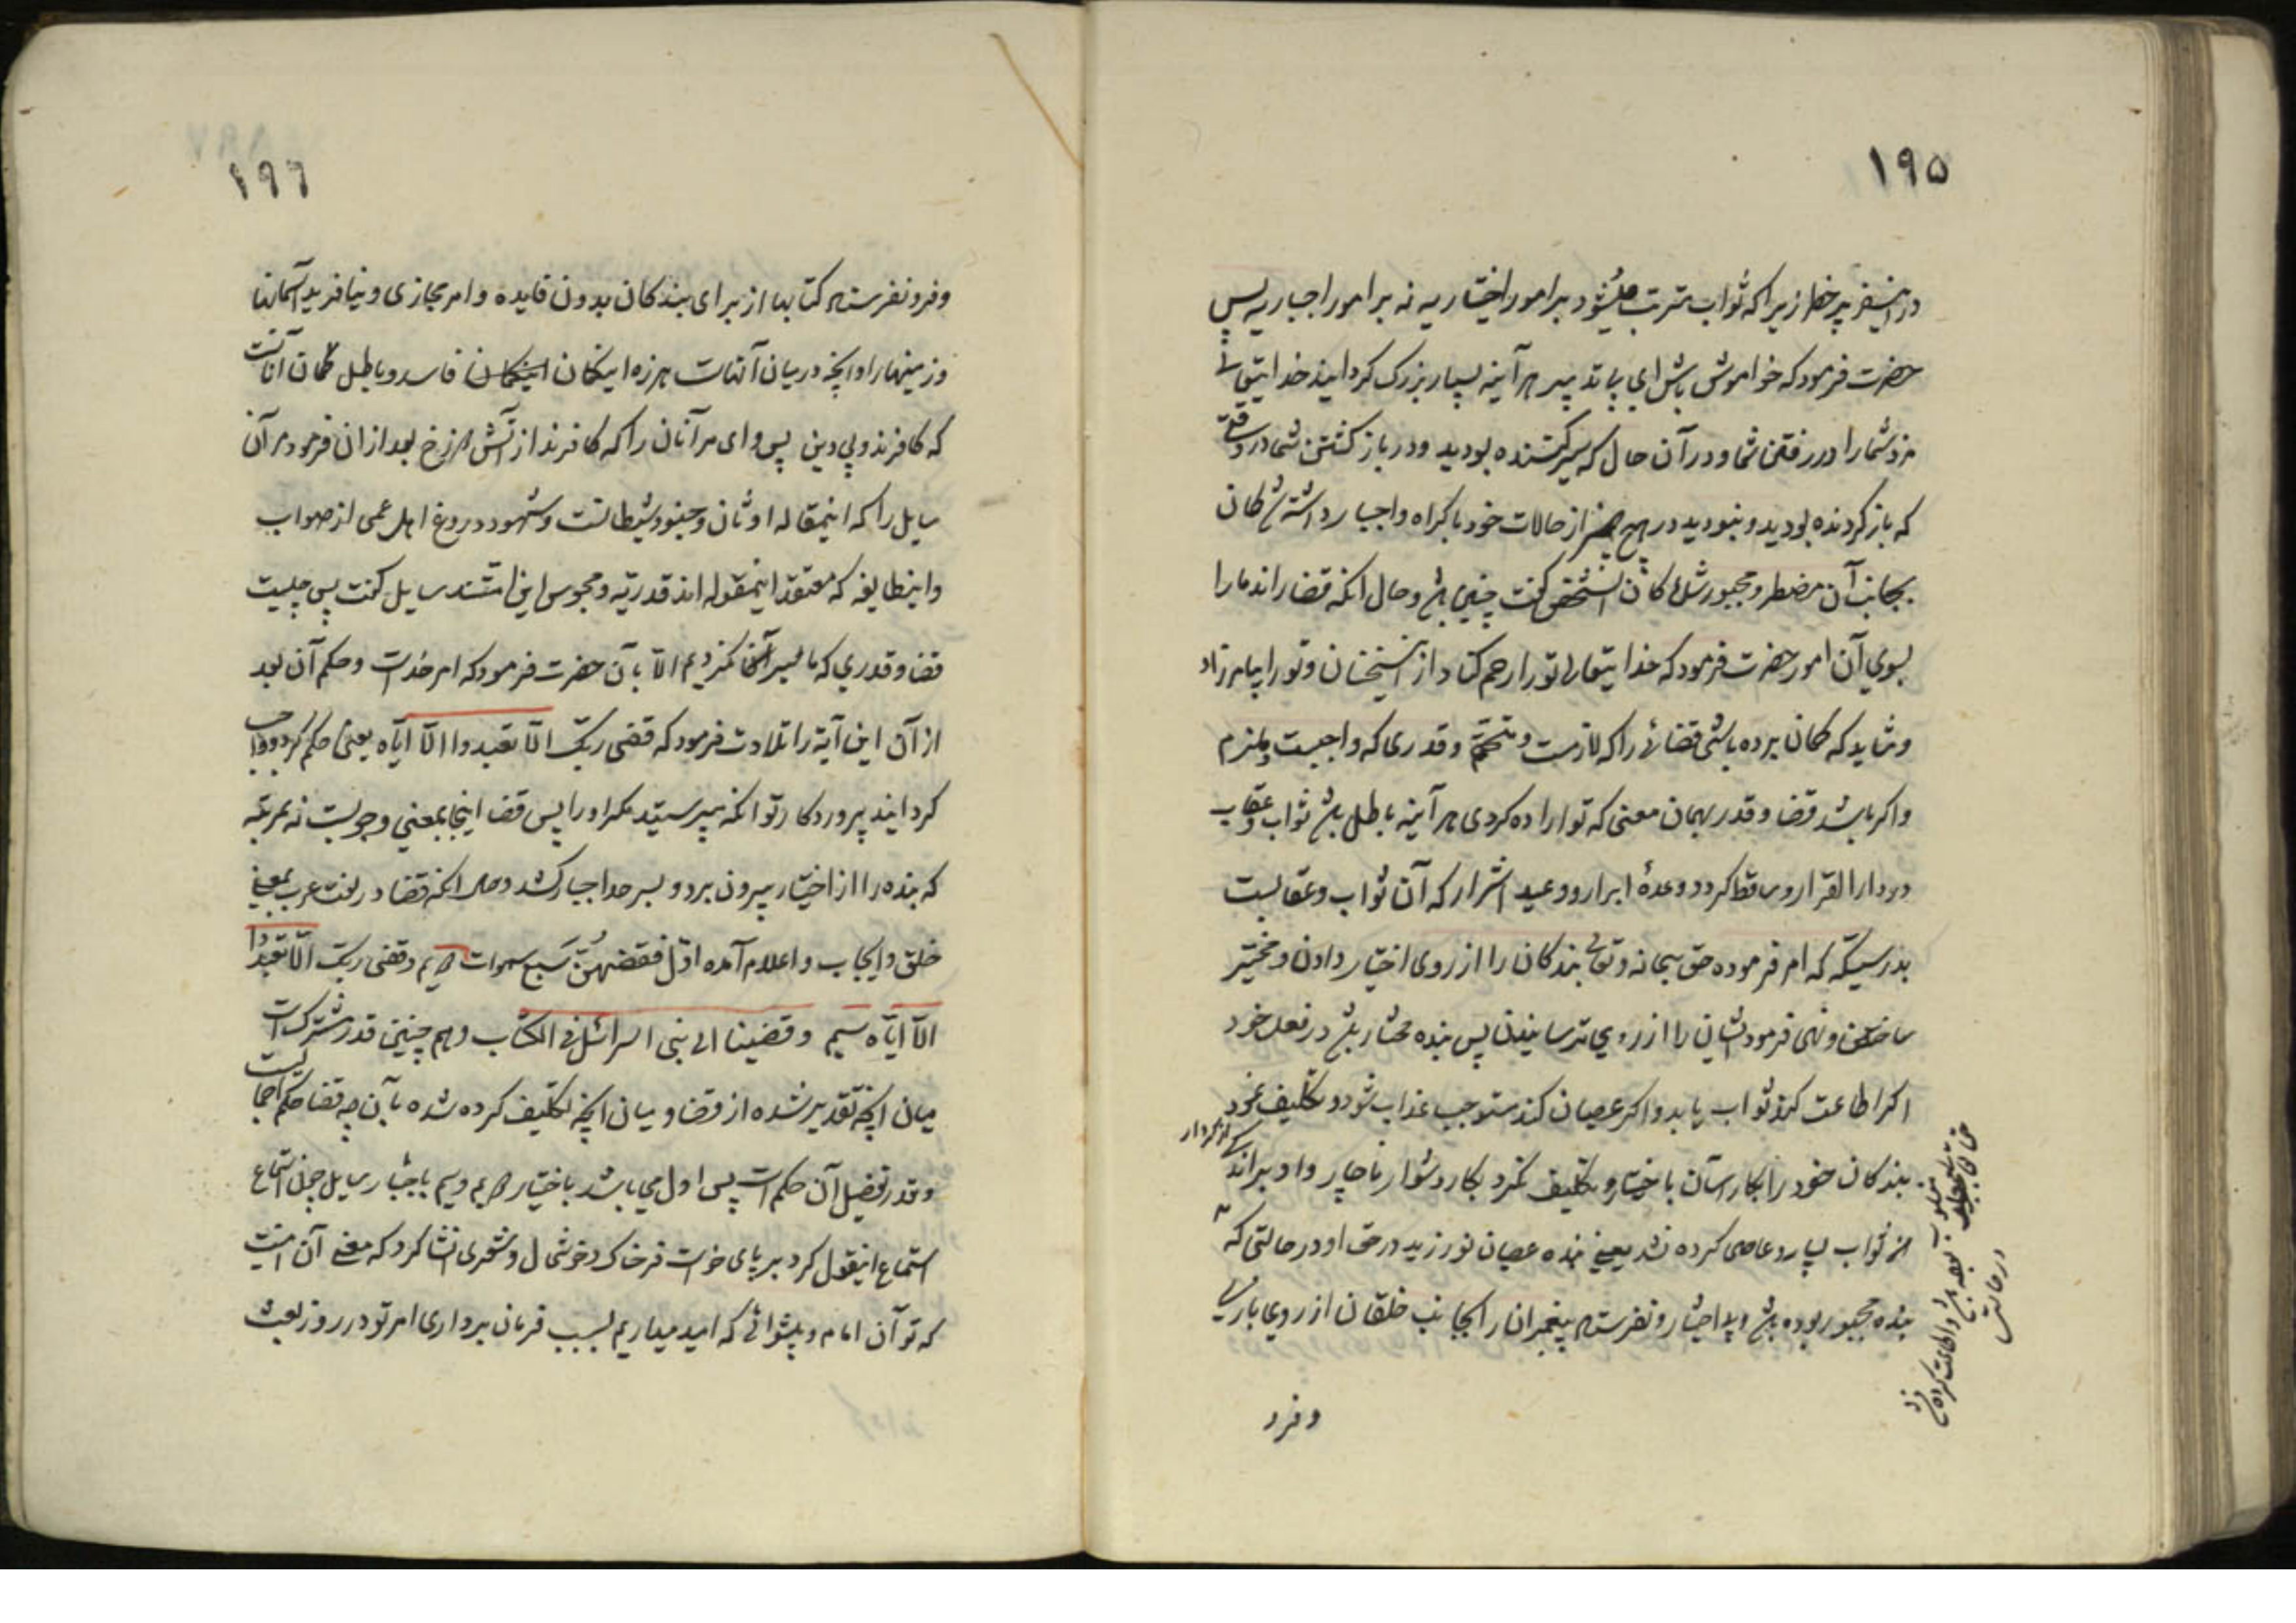 ۱۹۵
زیرا که ثواب مترتب میشود بر امور اختیاریه نه بر امور اجباریه پس
حضرت فرمود که خواموش باش ای هر آینه بسیار بزرک کردانید خدایتعالی
مزد شما را در رفتن شما و در آن حال که سیر کننده بودید و در باز کشتن شما در وقتی
که باز کردنده بودید و نبودید در هیچ چیز از حالات خود با کراه و اجبار داشته شدکان
بجانب آن مضطر و مجبور شدکان آنشخص کفت چنین باشد و حال آنکه قضا راند ما را
بسوی آن امور حضرت فرمود که خدایتعالی تو را رحم کناد از اینسخنان و تو را بیامرزاد
و شاید که کمان برده باشی قضائی را که لازمست و متحتم و قدری که واجبست و ملزم
و اکر باشد قضا و قدر بهمان معنی که تو اراده کردی هر آینه باطل باشد ثواب و عقاب
در دار القرار و ساقط کردد وعدهٔ ابرار و وعید اشرار که آن ثواب و عقابست
بدرستیکه که امر فرموده حق سبحانه و تعالی بندکان را از روی اختیار دادن و مخیر
ساختن و نهی فرمود ایشان را از روی ترسانیدن پس بنده مختار باشد در فعل خود
اکر اطاعت کند ثواب یابد و اکر عصیان کند مستوجب عذاب شود و تکلیف نمود
بندکان خود را بکار آسان با ختیار و تکلیف نکرد بکار دشوار ناچار و داد بر اندکی از کردار
مزد ثواب بسیار و عاصی کرده نشد یعنی بنده عصیان نورزید در حق او در حالتی که
بنده مجبور بوده باشد و بی اختیار و نفرستاد پیغمبران را بجانب خلقان از روی بازی
در حالتی
و فرو
۱۹۶
و فرو نفرستاد کتابها از برای بندکان بدون فایده و امر مجازی و نیافرید آسمانها
و زمینها را و آنچه در میان آنهاست هرزه اینکمان فاسد و باطل کمان آنانست
که کافرند و بی دین پس وای مر آنان را که کافرند از آتش دوزخ بعد از ان فرمود مر آن
سایل را که اینمقاله اوثان و جنود شیطانست و شهود دروغ اهل عمی از صواب
و اینطایفه که معتقد اینمقوله اند قدریه و مجوس این امتند سایل کفت پس چیست
قضا و قدری که ما سیر آنجا نکردیم الّا بآن حضرت فرمود که امر خداست و حکم آن بعد
از آن این آیة را تلاوت فرمود که قضی ربّک الّا تعبدوا الّا ایّاه یعنی حکم کرد و واجب
کردانید پروردکار تو آنکه نپرستید مکر او را پس قضا اینجا بمعنی وجوبست نه بمرتبه
که بنده را از اختیار بیرون برد و بسر حد اجبار کشد و حال آنکه قضا در لغت عرب بمعنی
خلق و ایجاب و اعلام آمده اوّل فقضهنّ سبع سموات دویم و قضی ربّک الّا تعبدوا
الّا ایّاه سیم و قضینا الی بنی اسرائیل فی الکتاب و هم چنین قدر مشترکست
میان آنچه تقدیر شده از قضا و میان آنچه تکلیف کرده شده بآن چه قضا حکم اجمالیست
و قدر تفصیل آن حکم است پس اول می باشد باختیار دویم و سیم سایل چون استماع
استماع اینقول کرد بر پای خواست فرخناک و خوشحال و شعری انشا کرد که معنی آن اینست
که تو آن امام و پیشوائی که امید میداریم بسبب فرمان برداری امر تو در روز بعث